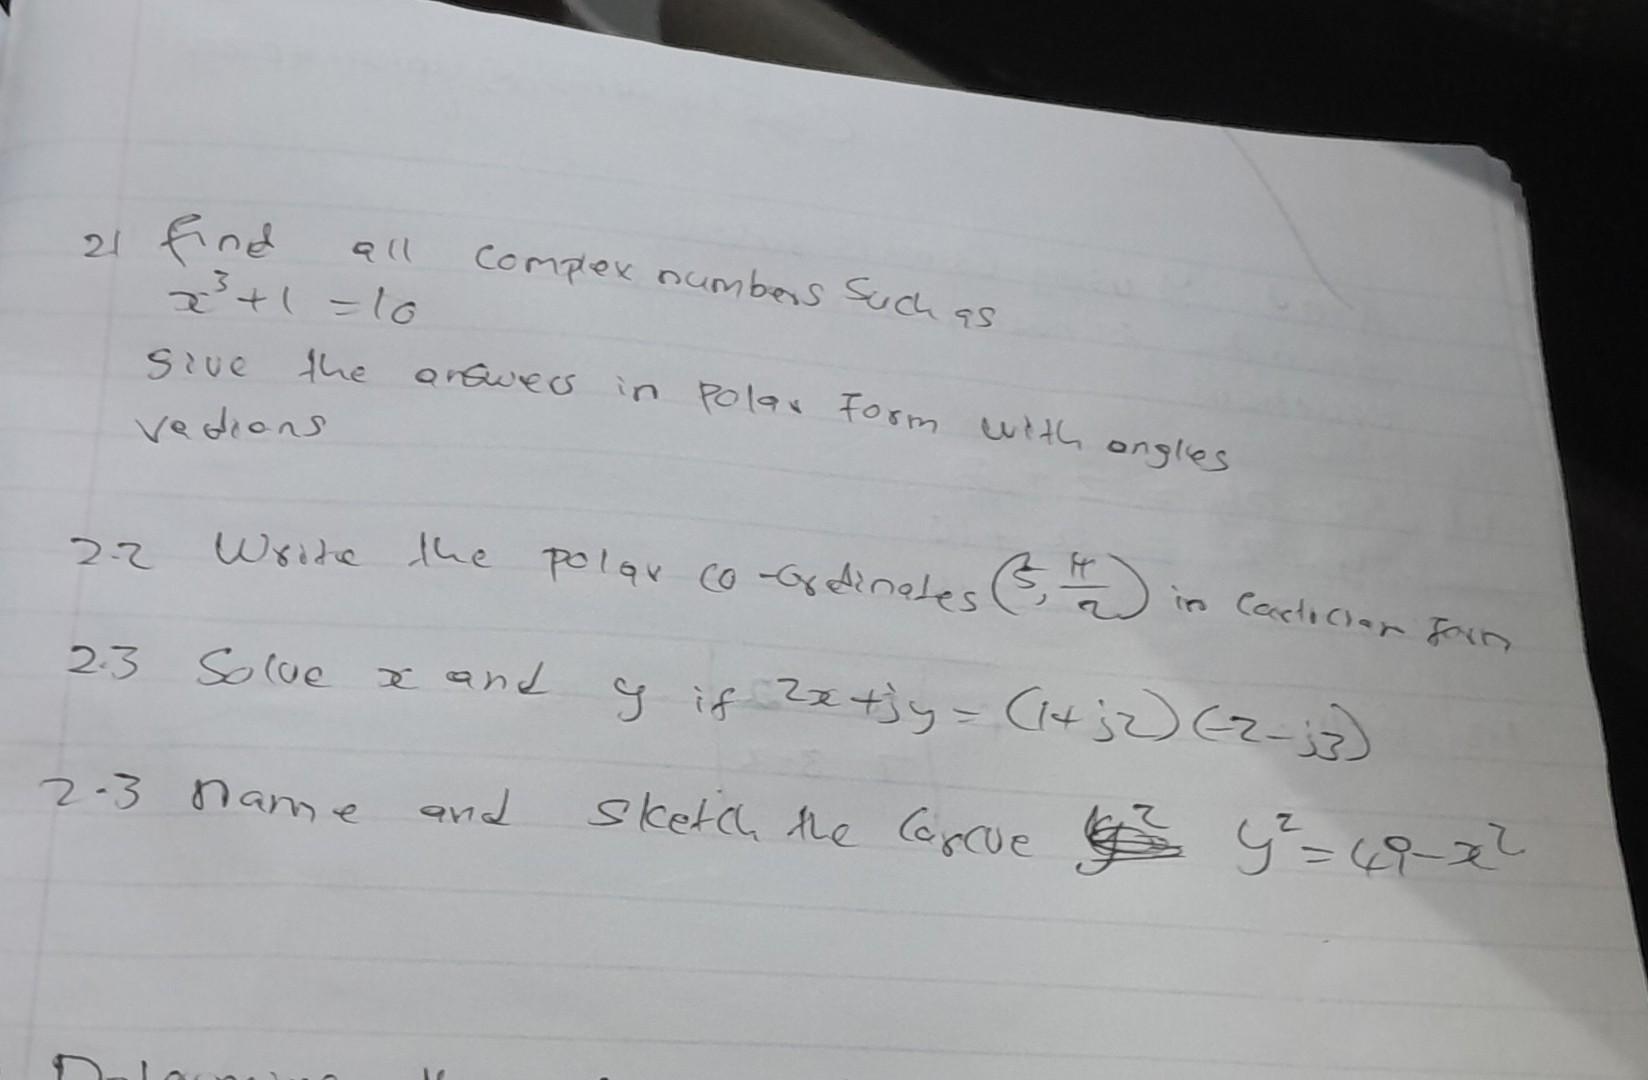 21 find all complex numbers such as
x³+1 = 10
give the answers in polar form with angles
radians
2.2 Write the polar co-ordinates (5, π/2) in Cartician form
2.3 Solve x and y if 2x+jy = (1+j2)(-2-j3)
2.3 name and sketch the Curve y² = 49-x²